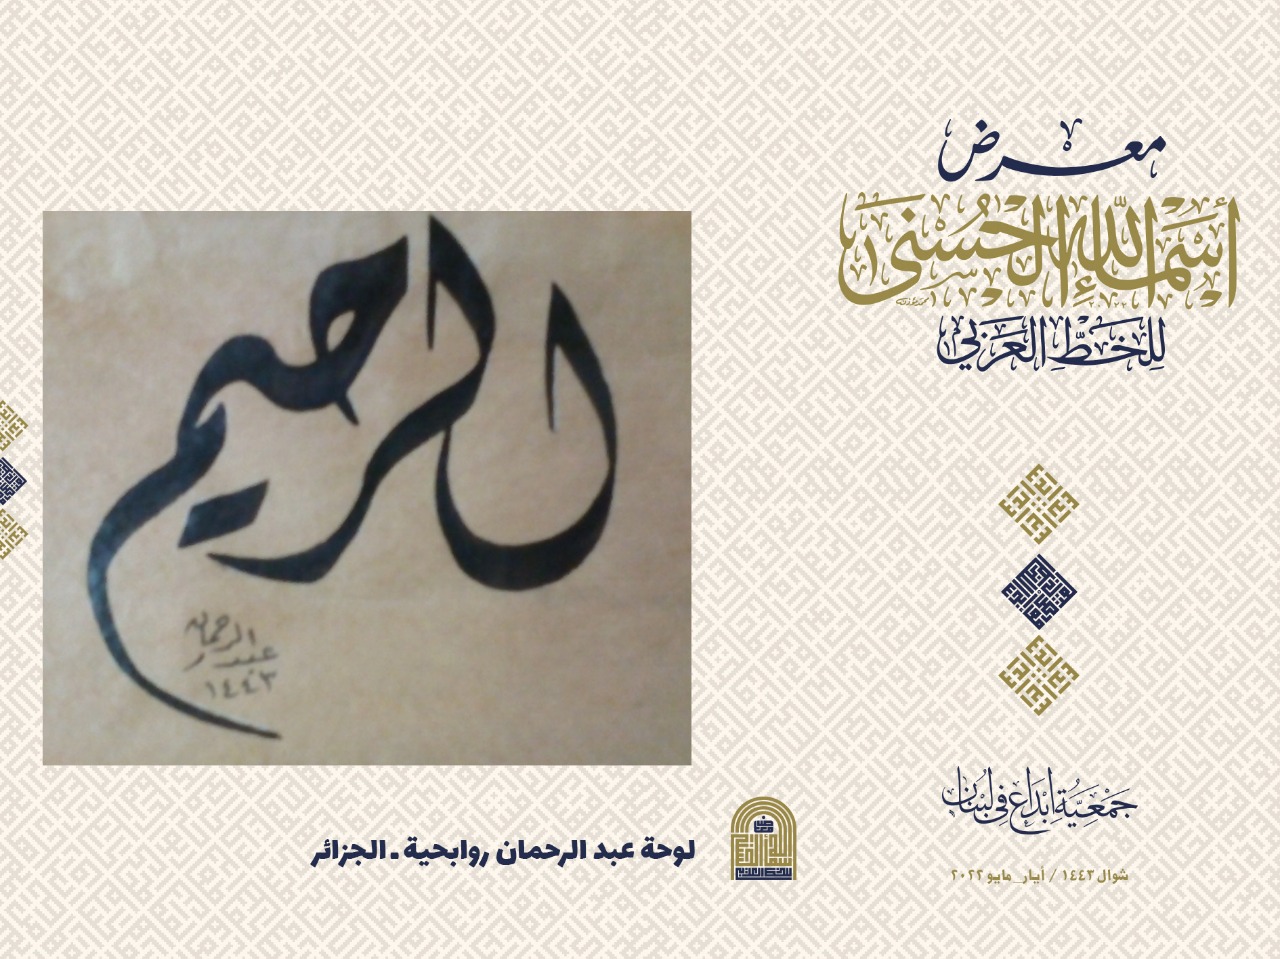 معرض
أسماء الله الحسنى
للخط العربي
جمعية إبداع في لبنان
شوال ١٤٤٣ / أيار_مايو ٢٠٢٢
الرحيم
عبد الرحمان
١٤٤٣
لوحة عبد الرحمان روابحية ـ الجزائر